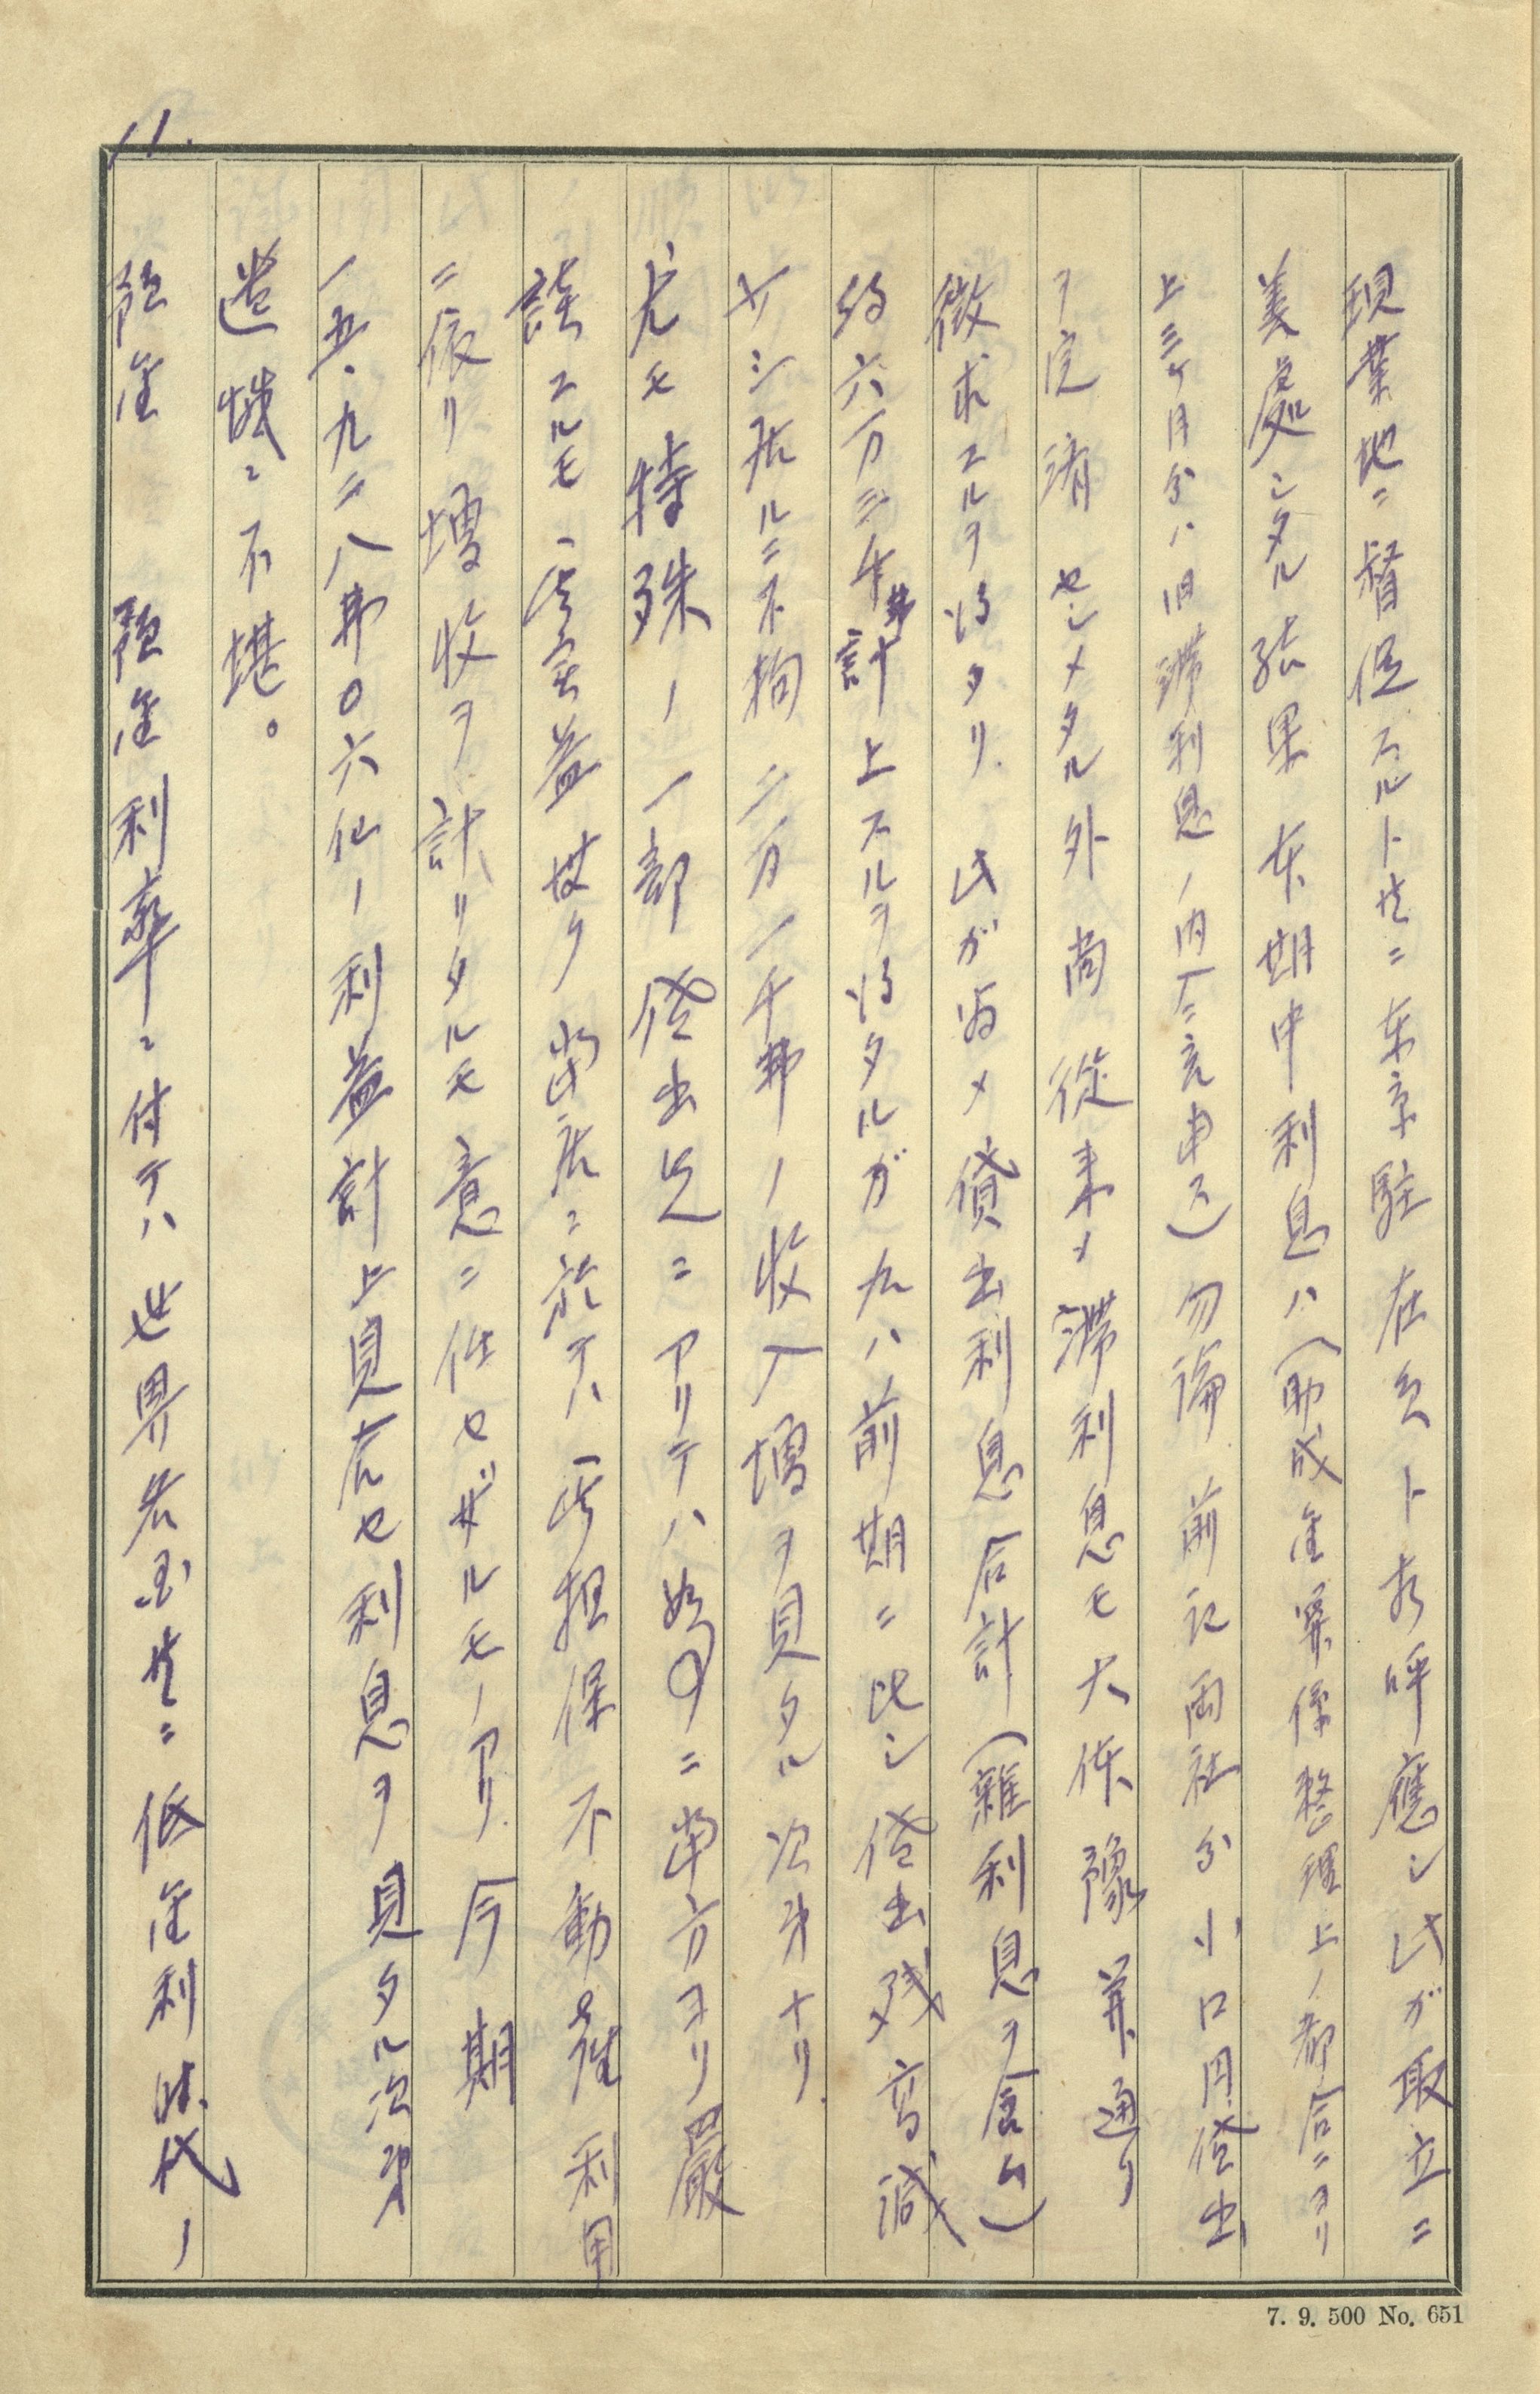 11.
現業地ニ督促スルト共ニ東京駐在員ト相呼應シ此ガ取立ニ
善處シタル結果本期中利息ハ(助成金関係整理上ノ都合ニヨリ
上三ケ月分ハ旧滞利息ノ内入ニ充申ス)勿論前記両社分小口円貸出
ヲ完済セシメタル外尚従来ノ滞利息モ大体豫算通リ
徴求スルヲ得タリ.此ガ為メ貸出利息合計(雑利息ヲ含ム)
約六万三千弗計上スルヲ得タルガ右ハ前期ニ比シ貸出残高減
少シ居ルニ不拘二万一千弗ノ収入増ヲ見タル次第ナリ.
尤モ特殊ノ一部貸出先ニアリテハ如何ニ当方ヨリ嚴
談スルモ 實益ナク当店ニ於テハ 担保不動産利用
ニ依リ増收ヲ計リタルモ意ニ任セザルモノアリ.今期
一五.九二八弗〇六仙ノ利益計上見戻セ利息ヲ見タル次第
遺憾ニ不堪。
預金 預金利率ニ付テハ世界各国共ニ低金利時代ノ
7. 9. 500 No. 651